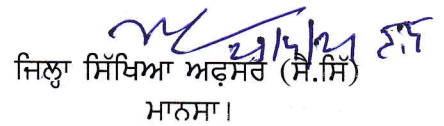 ਜਿਲ੍ਹਾ ਸਿੱਖਿਆ ਅਫ਼ਸਰ (ਸੈ.ਸਿੱ)
ਮਾਨਸਾ।